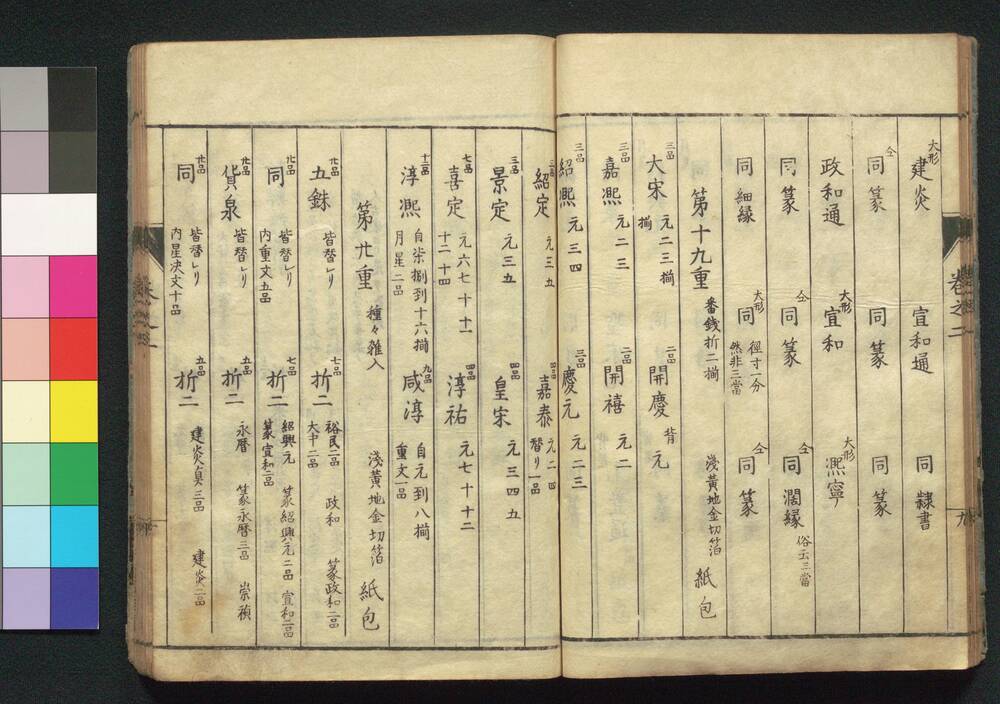 大形 建炎 宣和通 同 隸書
仝 同 篆 同 篆 同 篆
政和通 大形 宣和 大形 熈寧
同 篆 仝 同 篆 仝 同 濶縁 俗云三當
同 細縁 大形 同 徑寸一分 然非三當 仝 同 篆
第十九重 番銭折二揃 浅黄地金切箔 紙包
三品 大宋 元二三揃 揃 二品 開慶 背 元
三品 嘉凞 元二三 二品 開禧 元二
三品 紹凞 元三四 三品 慶元 元二三
三品 紹定 元三五 四品 嘉泰 元二四 替り一品
三品 景定 元三五 四品 皇宋 元三四五
七品 喜定 元六七十十一 十二十四 四品 淳祐 元七十十二
十二品 淳凞 自柒捌到十六揃 月星二品 九品 咸淳 自元到八揃 重文一品
第廿重 種々雑入 浅黄地金切箔 紙包
廿品 五銖 皆替レリ 七品 折二 裕民二品 大中二品 政和 篆政和二品
廿品 同 皆替レリ 内重文五品 七品 折二 紹興元 篆宣和二品 篆紹興元二品 宣和二品
廿品 貨泉 皆替レリ 五品 折二 永暦 篆永暦三品 崇禎
廿品 同 皆替レリ 内星决文十品 五品 折二 建炎真三品 建炎二品
卷之二
九